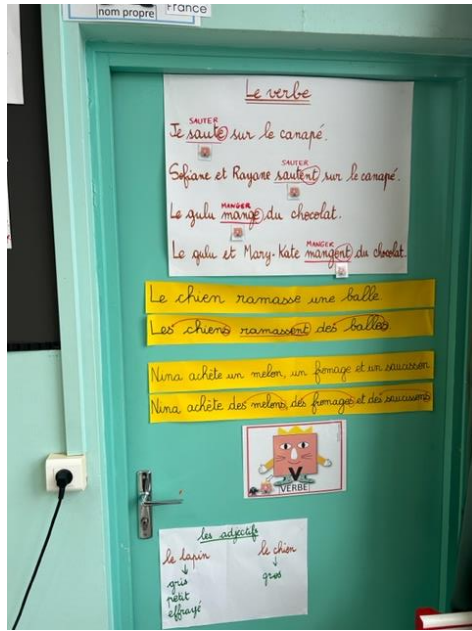 nom propre
France
Le verbe
SAUTER
Je saute sur le canapé.
SAUTER
Sofiane et Rayane sautent sur le canapé.
MANGER
Le gulu mange du chocolat.
MANGER
Le gulu et Mary-Kate mangent du chocolat.
Le chien ramasse une balle.
Les chiens ramassent des balles
Nina achète un melon, un fromage et un saucisson
Nina achète des melons, des fromages et des saucissons
V
VERBE
les adjectifs
le lapin
gris
petit
effrayé
le chien
gros